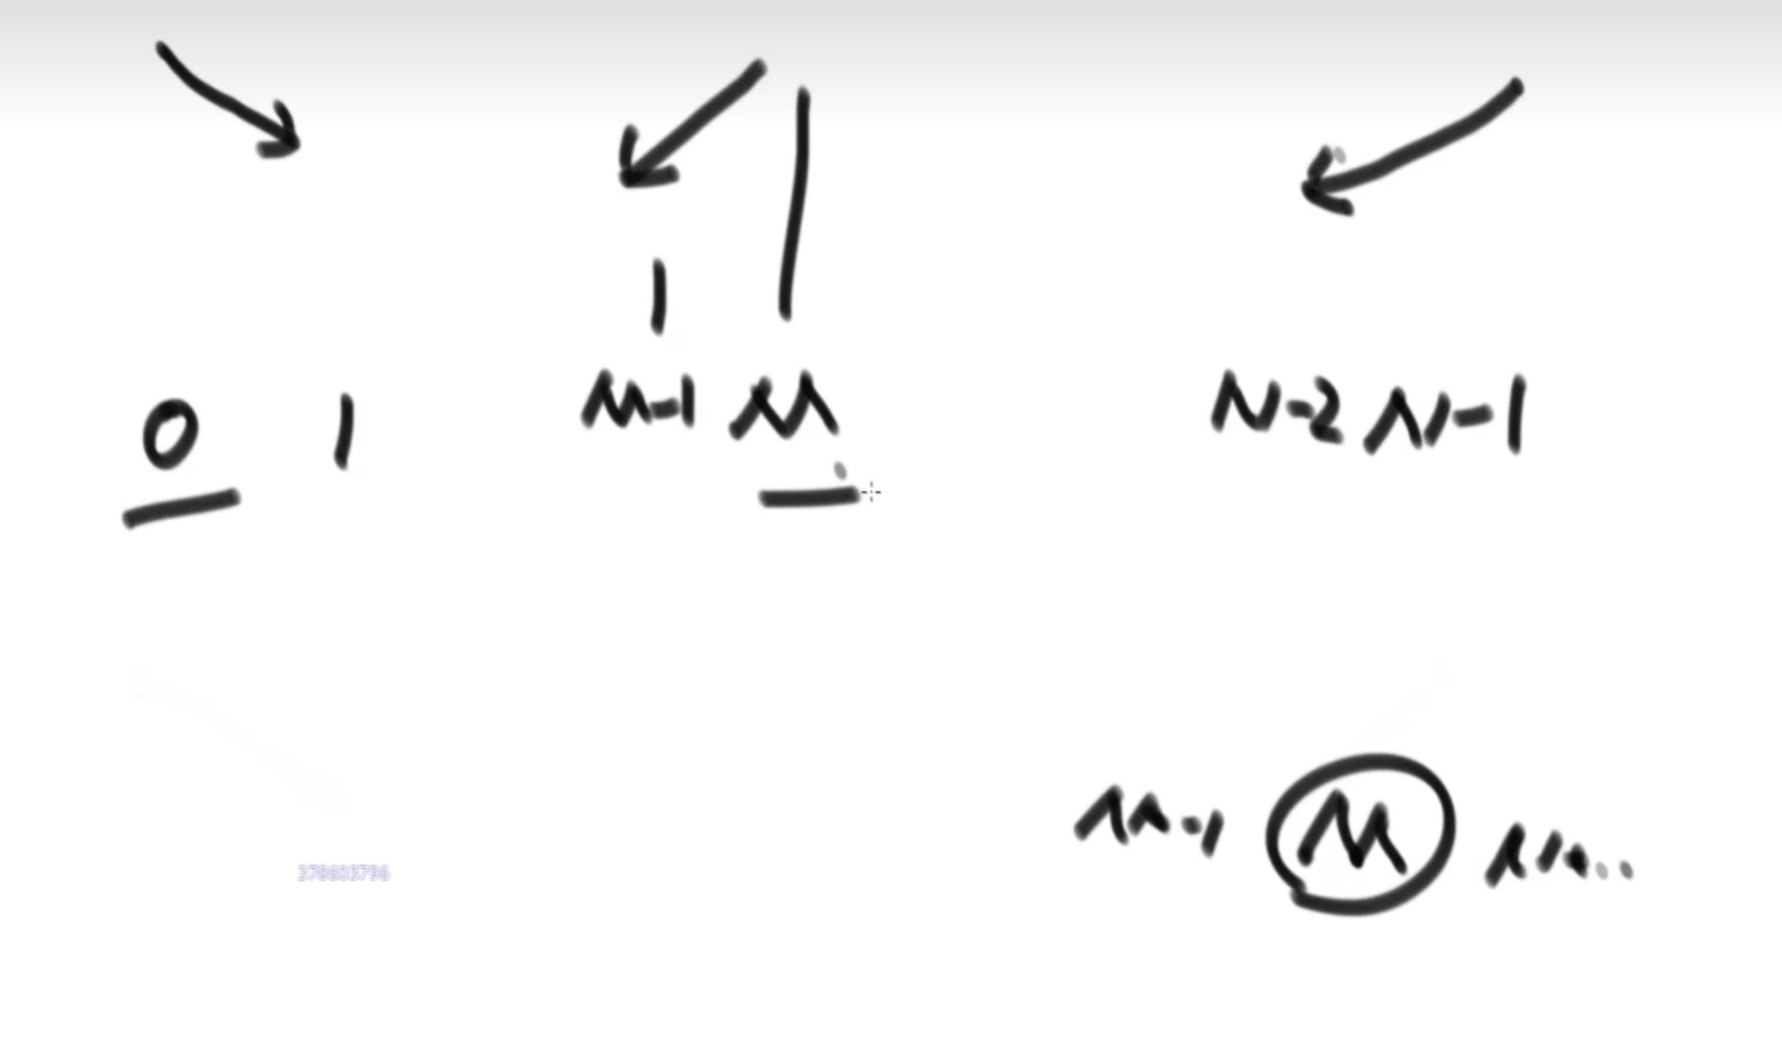 0 1 M-1 M N-2 N-1
M-1 M
378603796